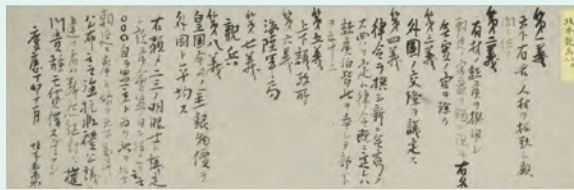 第一義
天下有名ノ人材ヲ招致シ顧
問ニ供フ
第二義
有材ノ諸侯ヲ撰用シ
朝廷ノ官爵ヲ賜ヒ現今有名
無実ノ官ヲ除ク
第三義
外国ノ交際ヲ議定ス
第四義
律令ヲ撰シ新ニ無窮ノ
大典ヲ定ム律令既ニ定レハ
諸侯伯皆此ヲ奉シテ部下
ヲ率ユ
第五義
上下議政所
第六義
海陸軍局
第七義
親兵
第八義
皇国今日ノ金銀物価ヲ
外国ト平均ス
右預メ二三ノ明眼士ト議定
シ諸侯会盟ノ日ヲ待ツテ云云
○○○自ラ盟主ト為リ此ヲ以テ
朝廷ニ奉リ始テ天下万民ニ
公布云云強抗非礼公議ニ
違フ者ハ断然征討ス権
門貴族モ貸借スル事ナシ
慶應丁卯十一月 坂本直柔